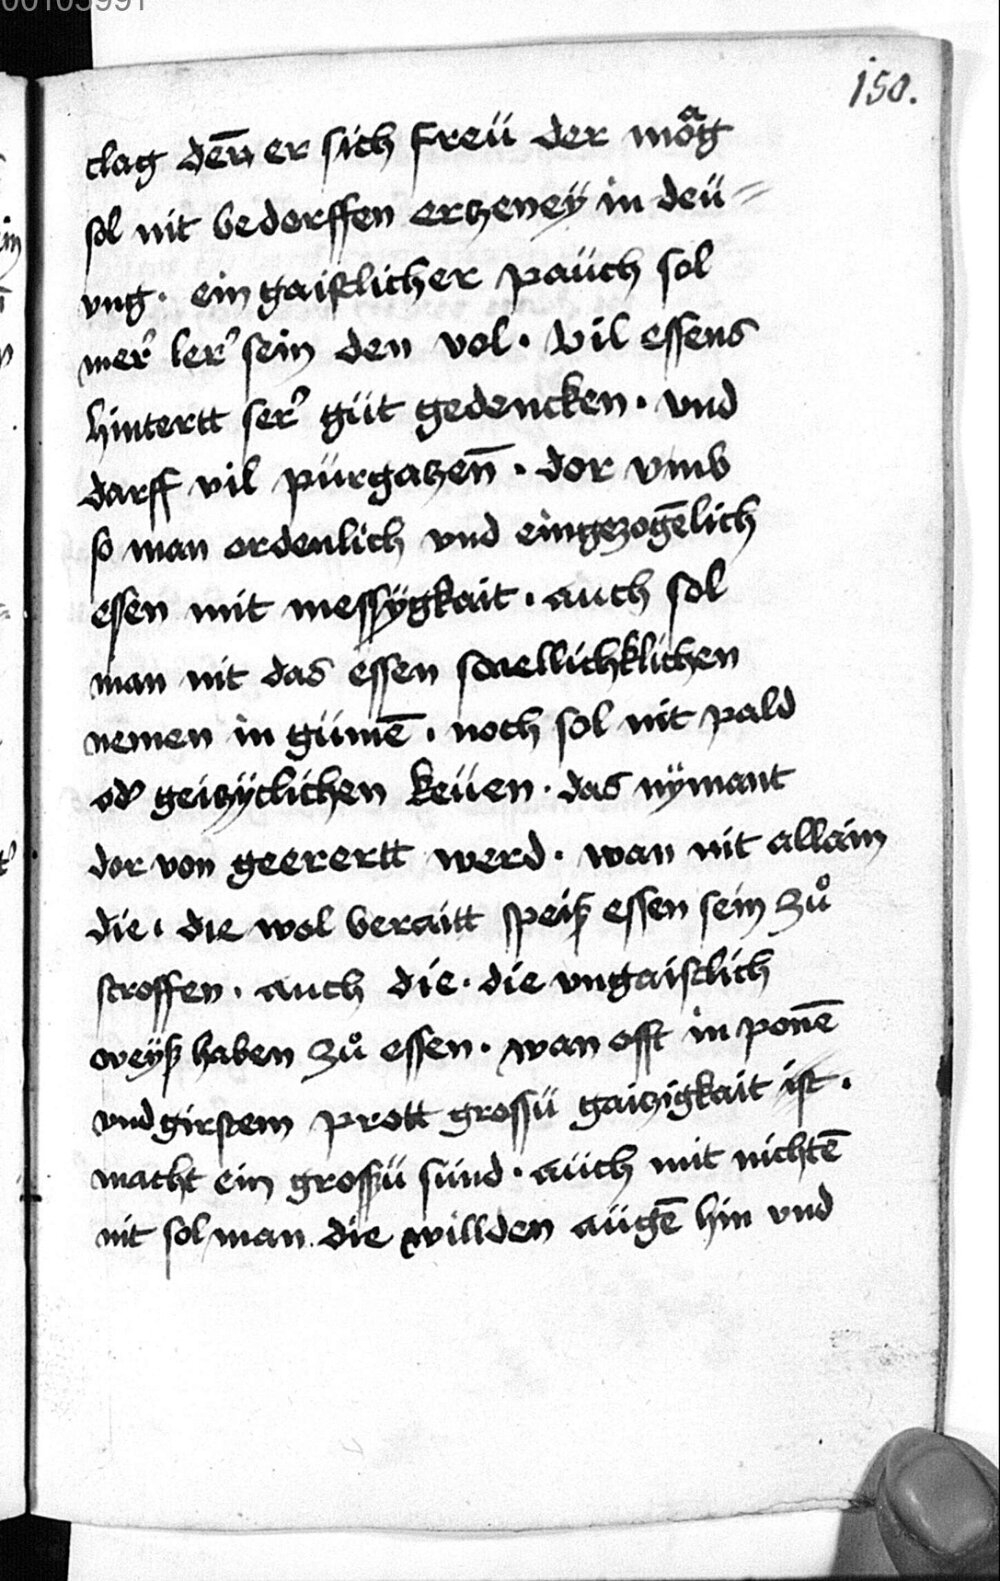 00105991
150.
clag den̄ er sich freü der moͤg
sol nit bedorffen ertzeney in deü=
ung · ein gaistlicher paüch sol
mer̉ ler̉ sein den vol · vil essens
hintertt ser̉ güt gedencken · vnd
darff vil pürgatzen̄ · dor vmb
so man ordenlich vnd eingezogēlich
essen mit messÿgkait · auch sol
man nit das essen schnellichklichen
nemen in gümē · noch sol nit pald
od̉ geitzÿclichen keüen · das nÿmant
dor von geerertt werd · wan nit allain
die · die wol beraitt speiß essen sein zů
stroffen · auch die · die vngaistlich
weÿß haben zů essen · wan offt in ponē
vnd girstem prott grossü gaitzigkait ist ·
macht ein grossü sünd · aüch mit nichtē
nit sol man die willden aügē hin vnd